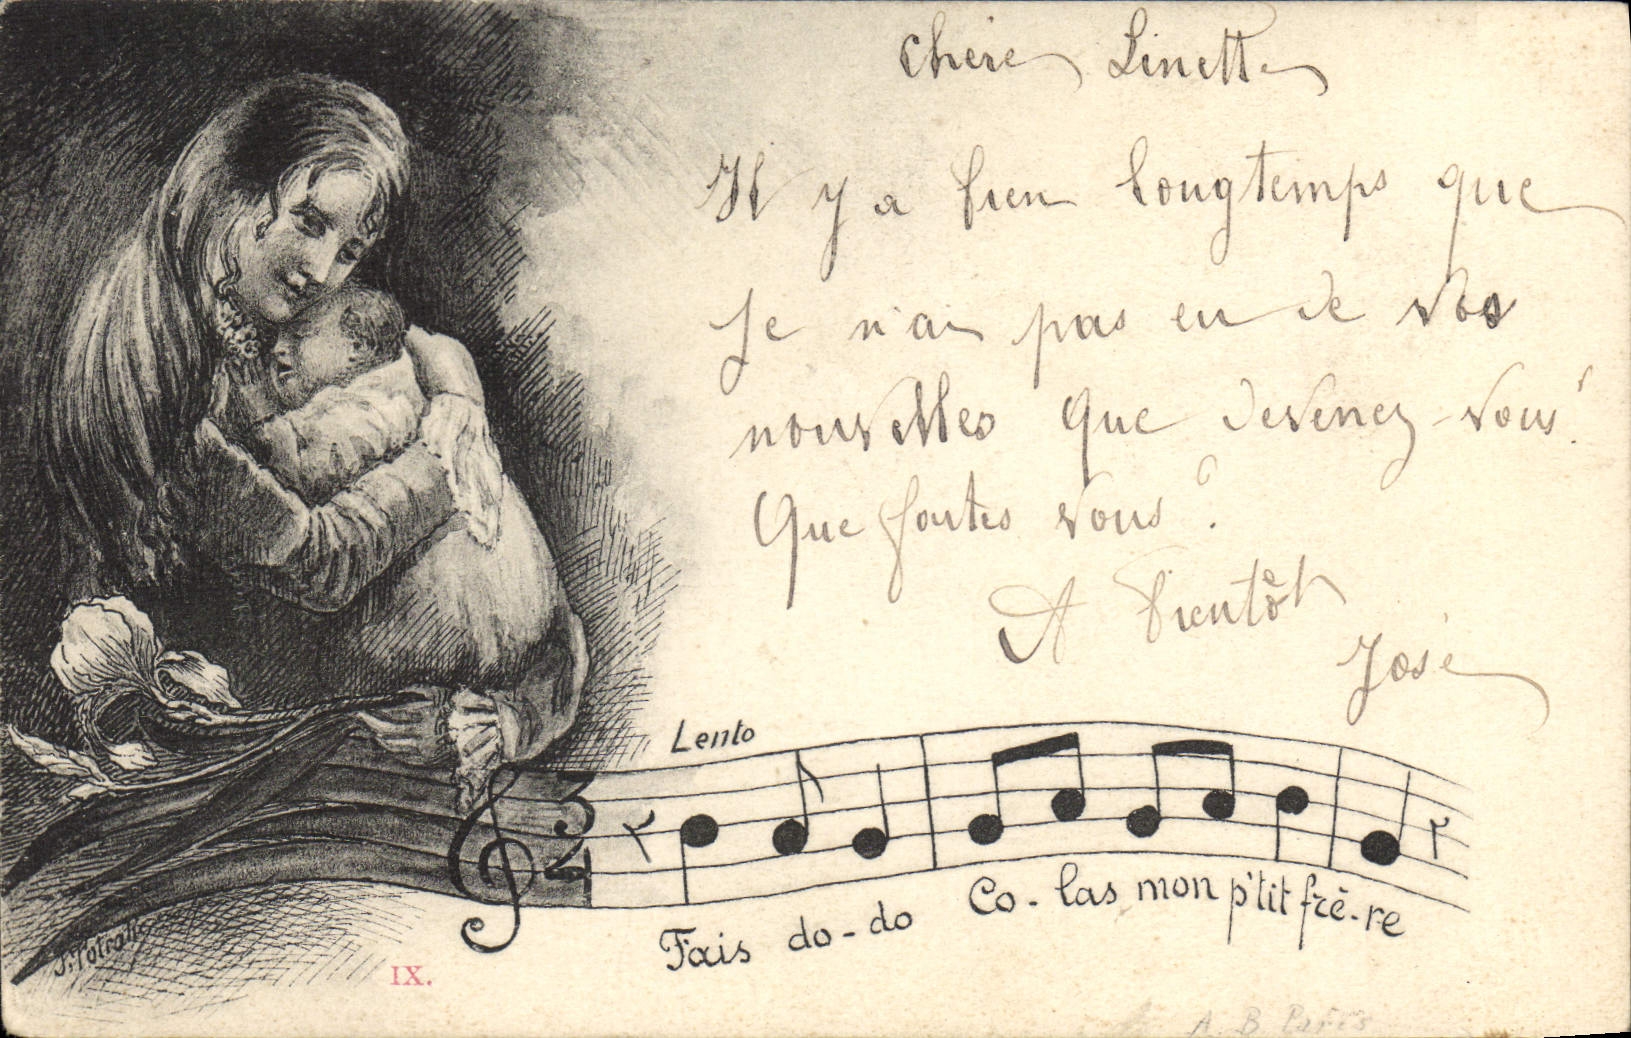 Chère Linette
Il y a bien longtemps que
je n'ai pas eu de vos
nouvelles Que devenez-vous!
Que faites vous?
A bientôt
José
Lento
3
4
Fais do-do Co-las mon p'tit frè-re
IX.
A. B. Paris